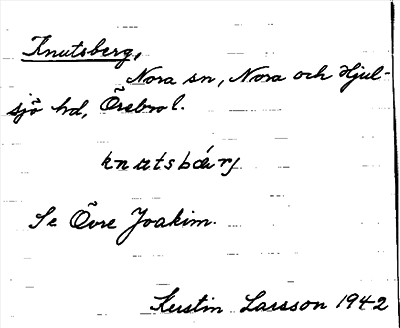 Knutsberg,
Nora sn, Nora och Hjul-
sjö hd, Örebro l.
knutsbærj
Se Övre Joakim.
Kerstin Larsson 1942